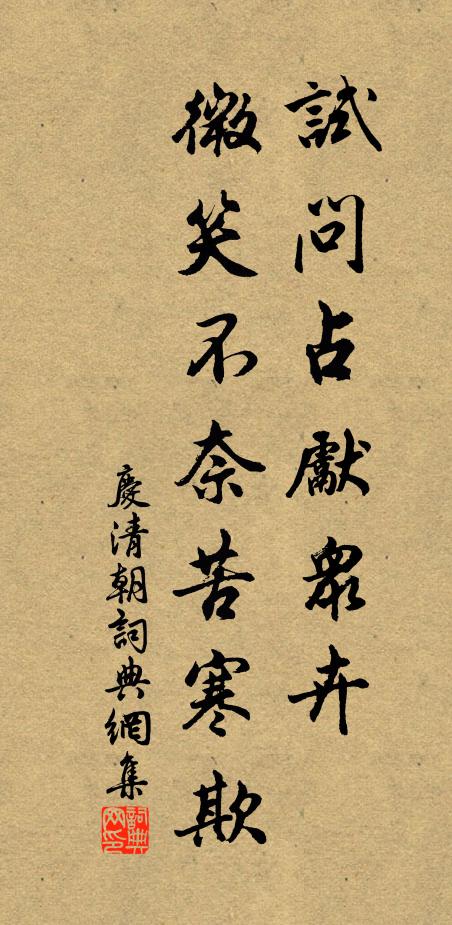 試問占獻眾卉
微笑不奈苦寒欺
慶清朝詞典網集
詞典網印